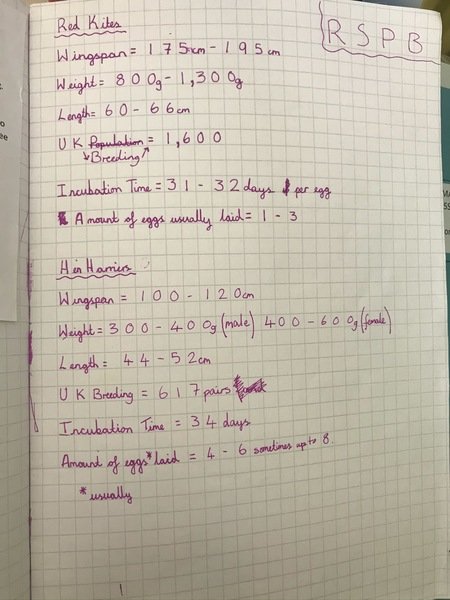 Red Kites
RSPB
Wingspan = 175cm - 195cm
Weight = 800g - 1,300g
Length = 60 - 66cm
UK Population = 1,600
Breeding
Incubation Time = 31 - 32 days per egg
Amount of eggs usually laid = 1 - 3
Hen Harriers
Wingspan = 100 - 120cm
Weight = 300 - 400g (male) 400 - 600g (female)
Length = 44 - 52cm
UK Breeding = 617 pairs
Incubation Time = 34 days
Amount of eggs* laid = 4 - 6 sometimes up to 8.
*usually